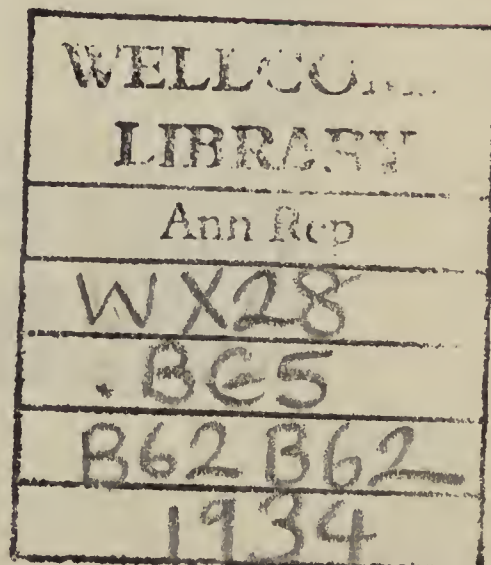 WELLCOME
LIBRARY
Ann Rep
WX28
.BE5
B62 B62
1934